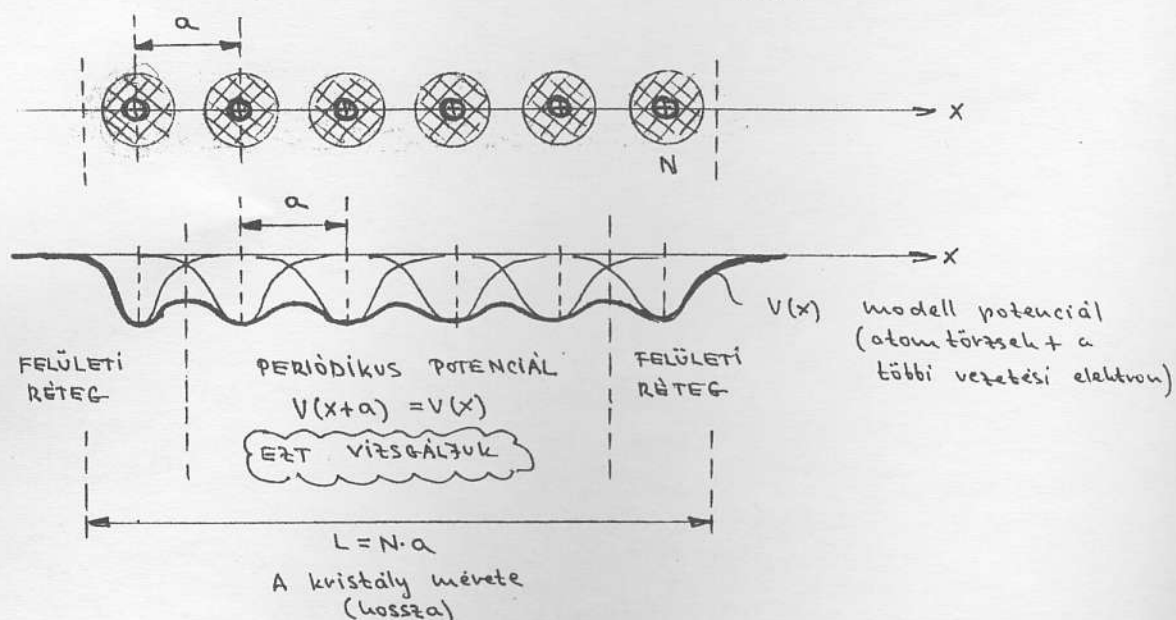 a
x
N
a
x
V(x) modell potenciál
(atomtörzsek + a
többi vezetési elektron)
FELÜLETI
RÉTEG
PERIÓDIKUS POTENCIÁL
V(x+a) = V(x)
EZT VIZSGÁLJUK
FELÜLETI
RÉTEG
L = N·a
A kristály mérete
(hossza)